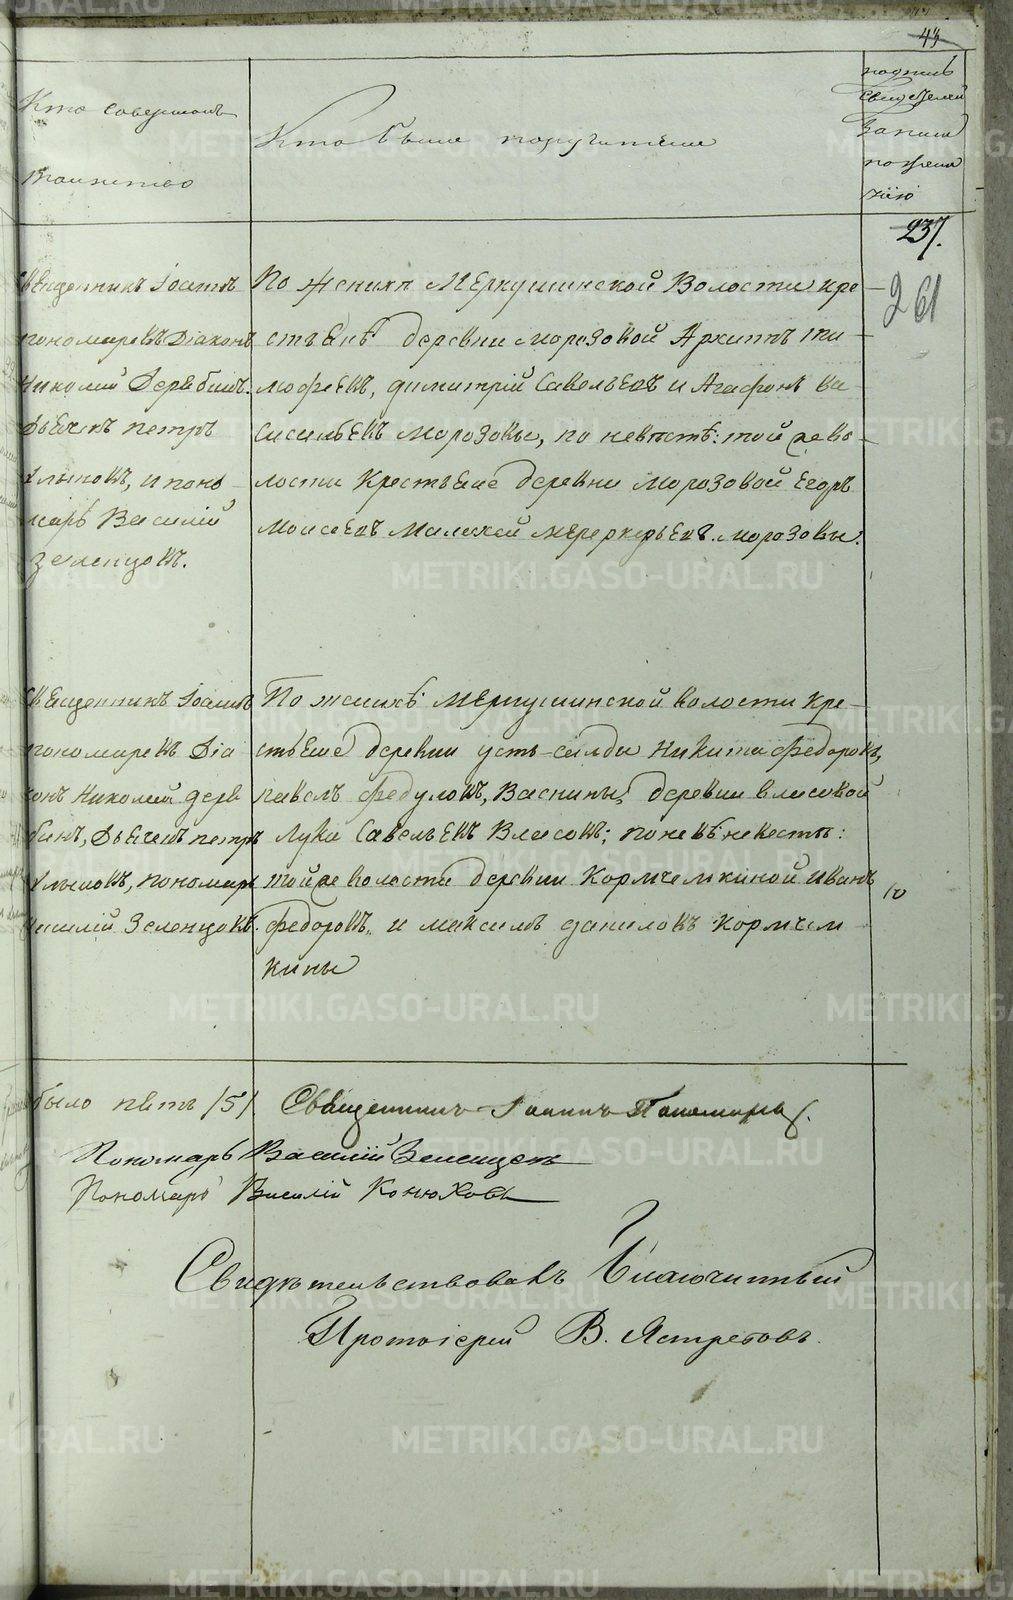 43
Кто совершалъ
таинство
Кто были поручители
подпись
свидетелей
записи
по желанiю
237.
261
Священникъ Iоаннъ
пономаревъ Дiаконъ
Николай Дерябинъ
Дьячекъ петръ
и поно
марь Василiй
Зеленцовъ.
По женихѣ Меркушинской Волости кре
стьяне деревни Морозовой Архипъ ти
мофеевъ, димитрiй Савельевъ и Агафонъ ва
сильевъ Морозовы, по невѣстѣ: той же во
лости Крестьяне деревни Морозовой Егоръ
Моисеевъ Морозовы.
Священникъ Iоаннъ
пономаревъ Дiа
конъ Николай деря
бинъ, Дьячекъ петръ
пономарь
Василiй Зеленцовъ.
По женихѣ: Меркушинской волости кре
стьяне деревни усть-салды Никита Федоровъ,
павелъ Федуловъ, Васнины, деревни власовой
Лука Савельевъ Власовъ; по невѣстѣ:
той же волости деревни Кормчемкиной иванъ
федоровъ, и максимъ даниловъ Кормчем
кины
10
было пять /5/
Священникъ Iоаннъ Пономаревъ.
Пономарь Василiй Зеленцовъ
Пономарь Василiй Конюховъ
Свидѣтельствовалъ Благочинный
Протоiерей В. Ястребовъ.
METRIKI.GASO-URAL.RU